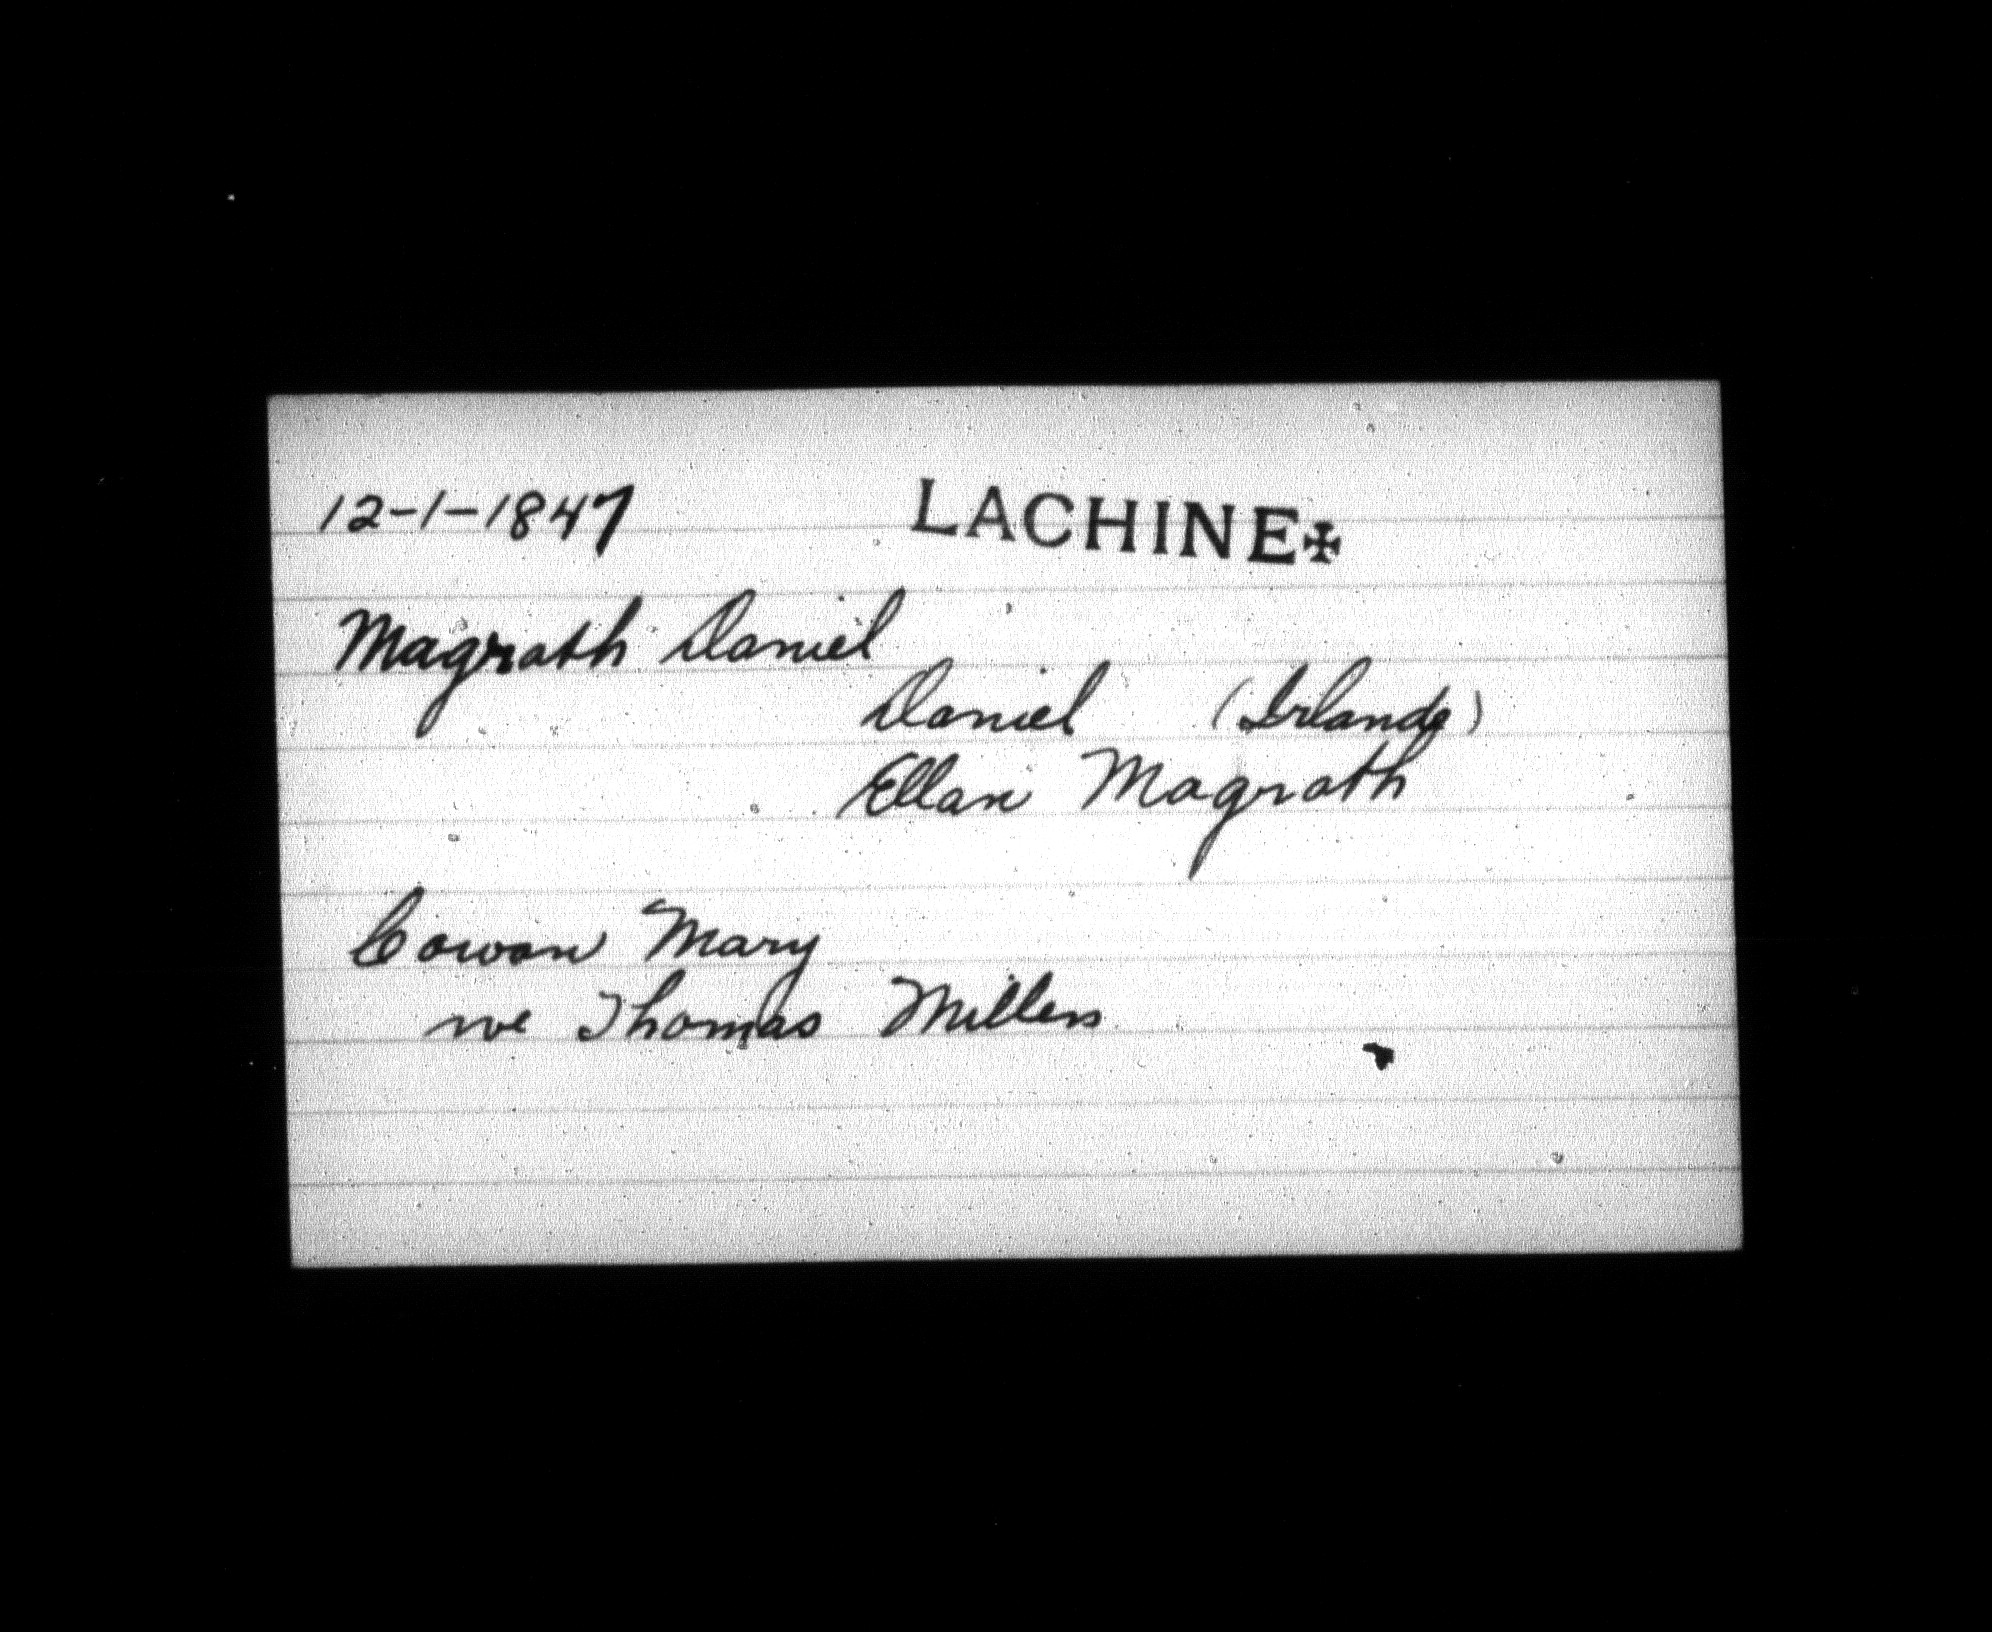 12-1-1847 LACHINE✠
Magrath Daniel
Daniel (Irlande)
Ellan Magrath
Cowan Mary
ve Thomas Millen